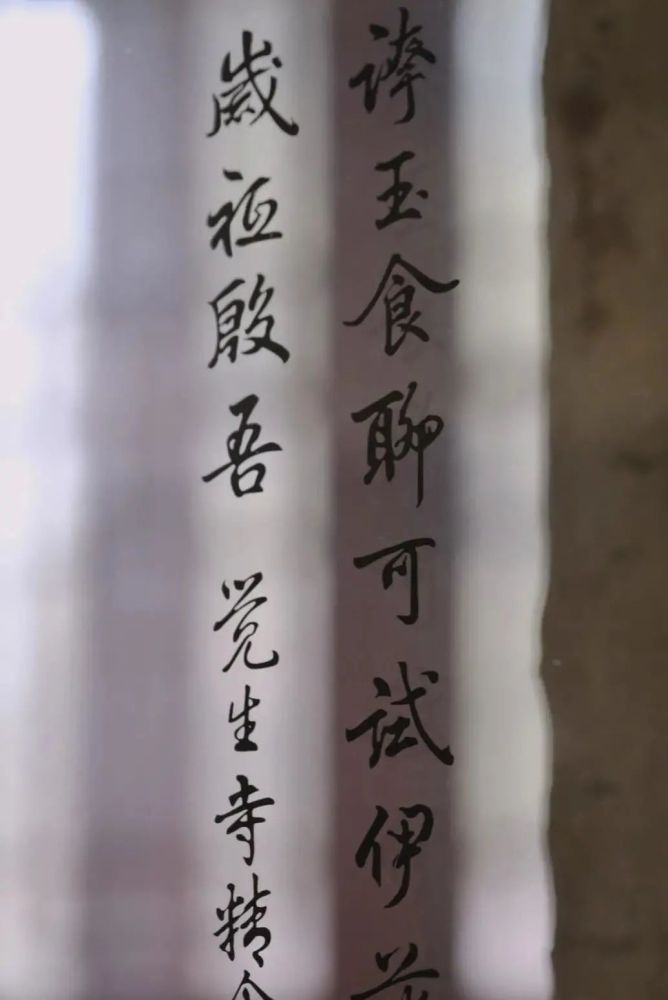 玉食聊可試伊
歲祗殷吾 觉生寺精